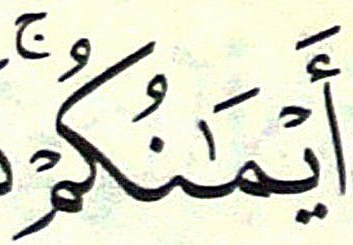 أَيْمَٰنُكُمْ ۚ